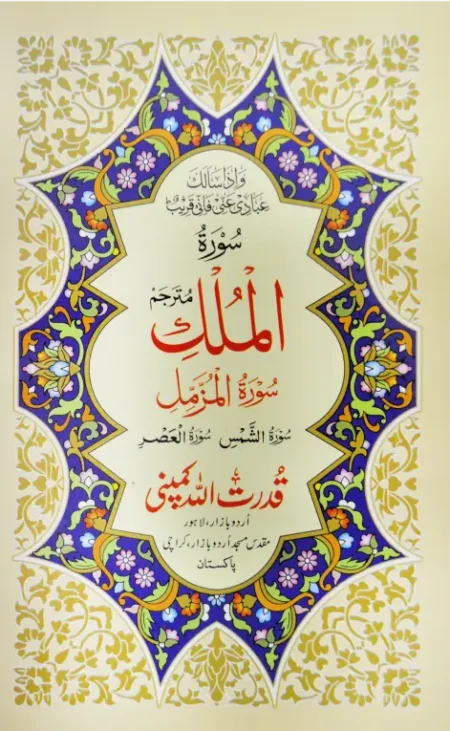 وَاِذَا سَاَلَكَ
عِبَادِیْ عَنِّیْ فَاِنِّیْ قَرِیْبٌ ط
سُوْرَةُ
الْمُلْكِ مُتَرجَم
سُوْرَةُ الْمُزَّمِّلِ
سُوْرَةُ الشَّمْسِ سُوْرَةُ الْعَصْرِ
قُدرت اللہ کمپنی
اُردو بازار، لاہور
مقدس مسجد اُردو بازار، کراچی
پاکستان